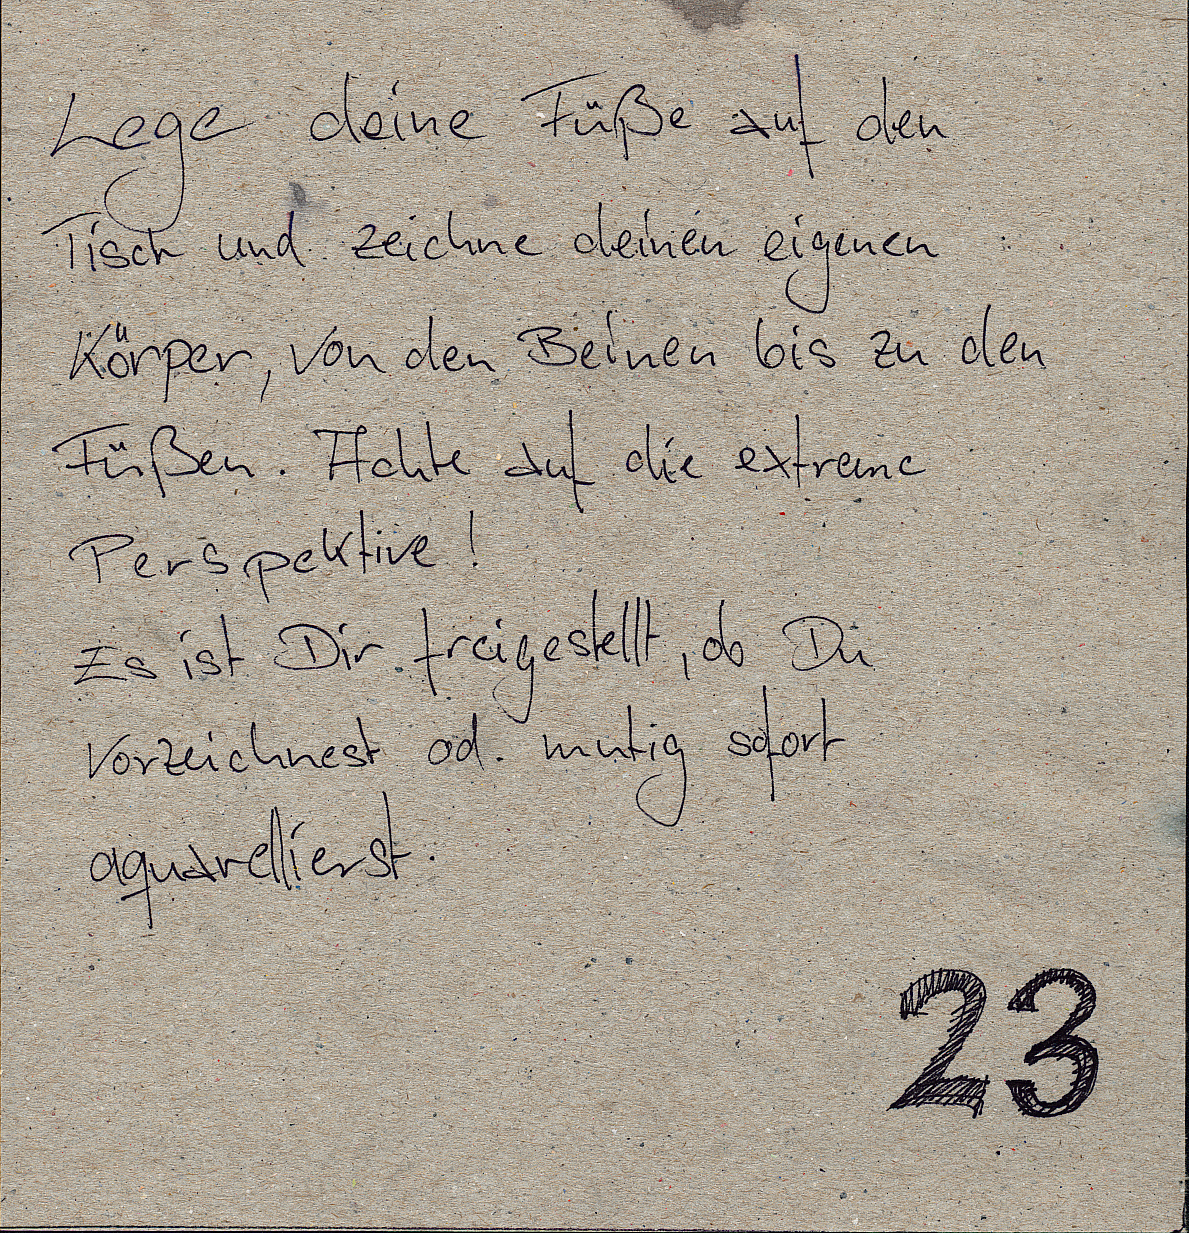 Lege deine Füße auf den
Tisch und zeichne deinen eigenen
Körper, von den Beinen bis zu den
Füßen. Achte auf die extreme
Perspektive!
Es ist Dir freigestellt, ob Du
vorzeichnest od. mutig sofort
aquarellierst.
23